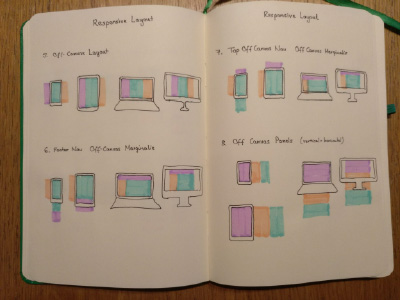 Responsive Layout
5. Off-Canvas Layout
6. Footer Nav Off-Canvas Marginalia
Responsive Layout
7. Top Off Canvas Nav Off Canvas Marginalia
8. Off Canvas Panels